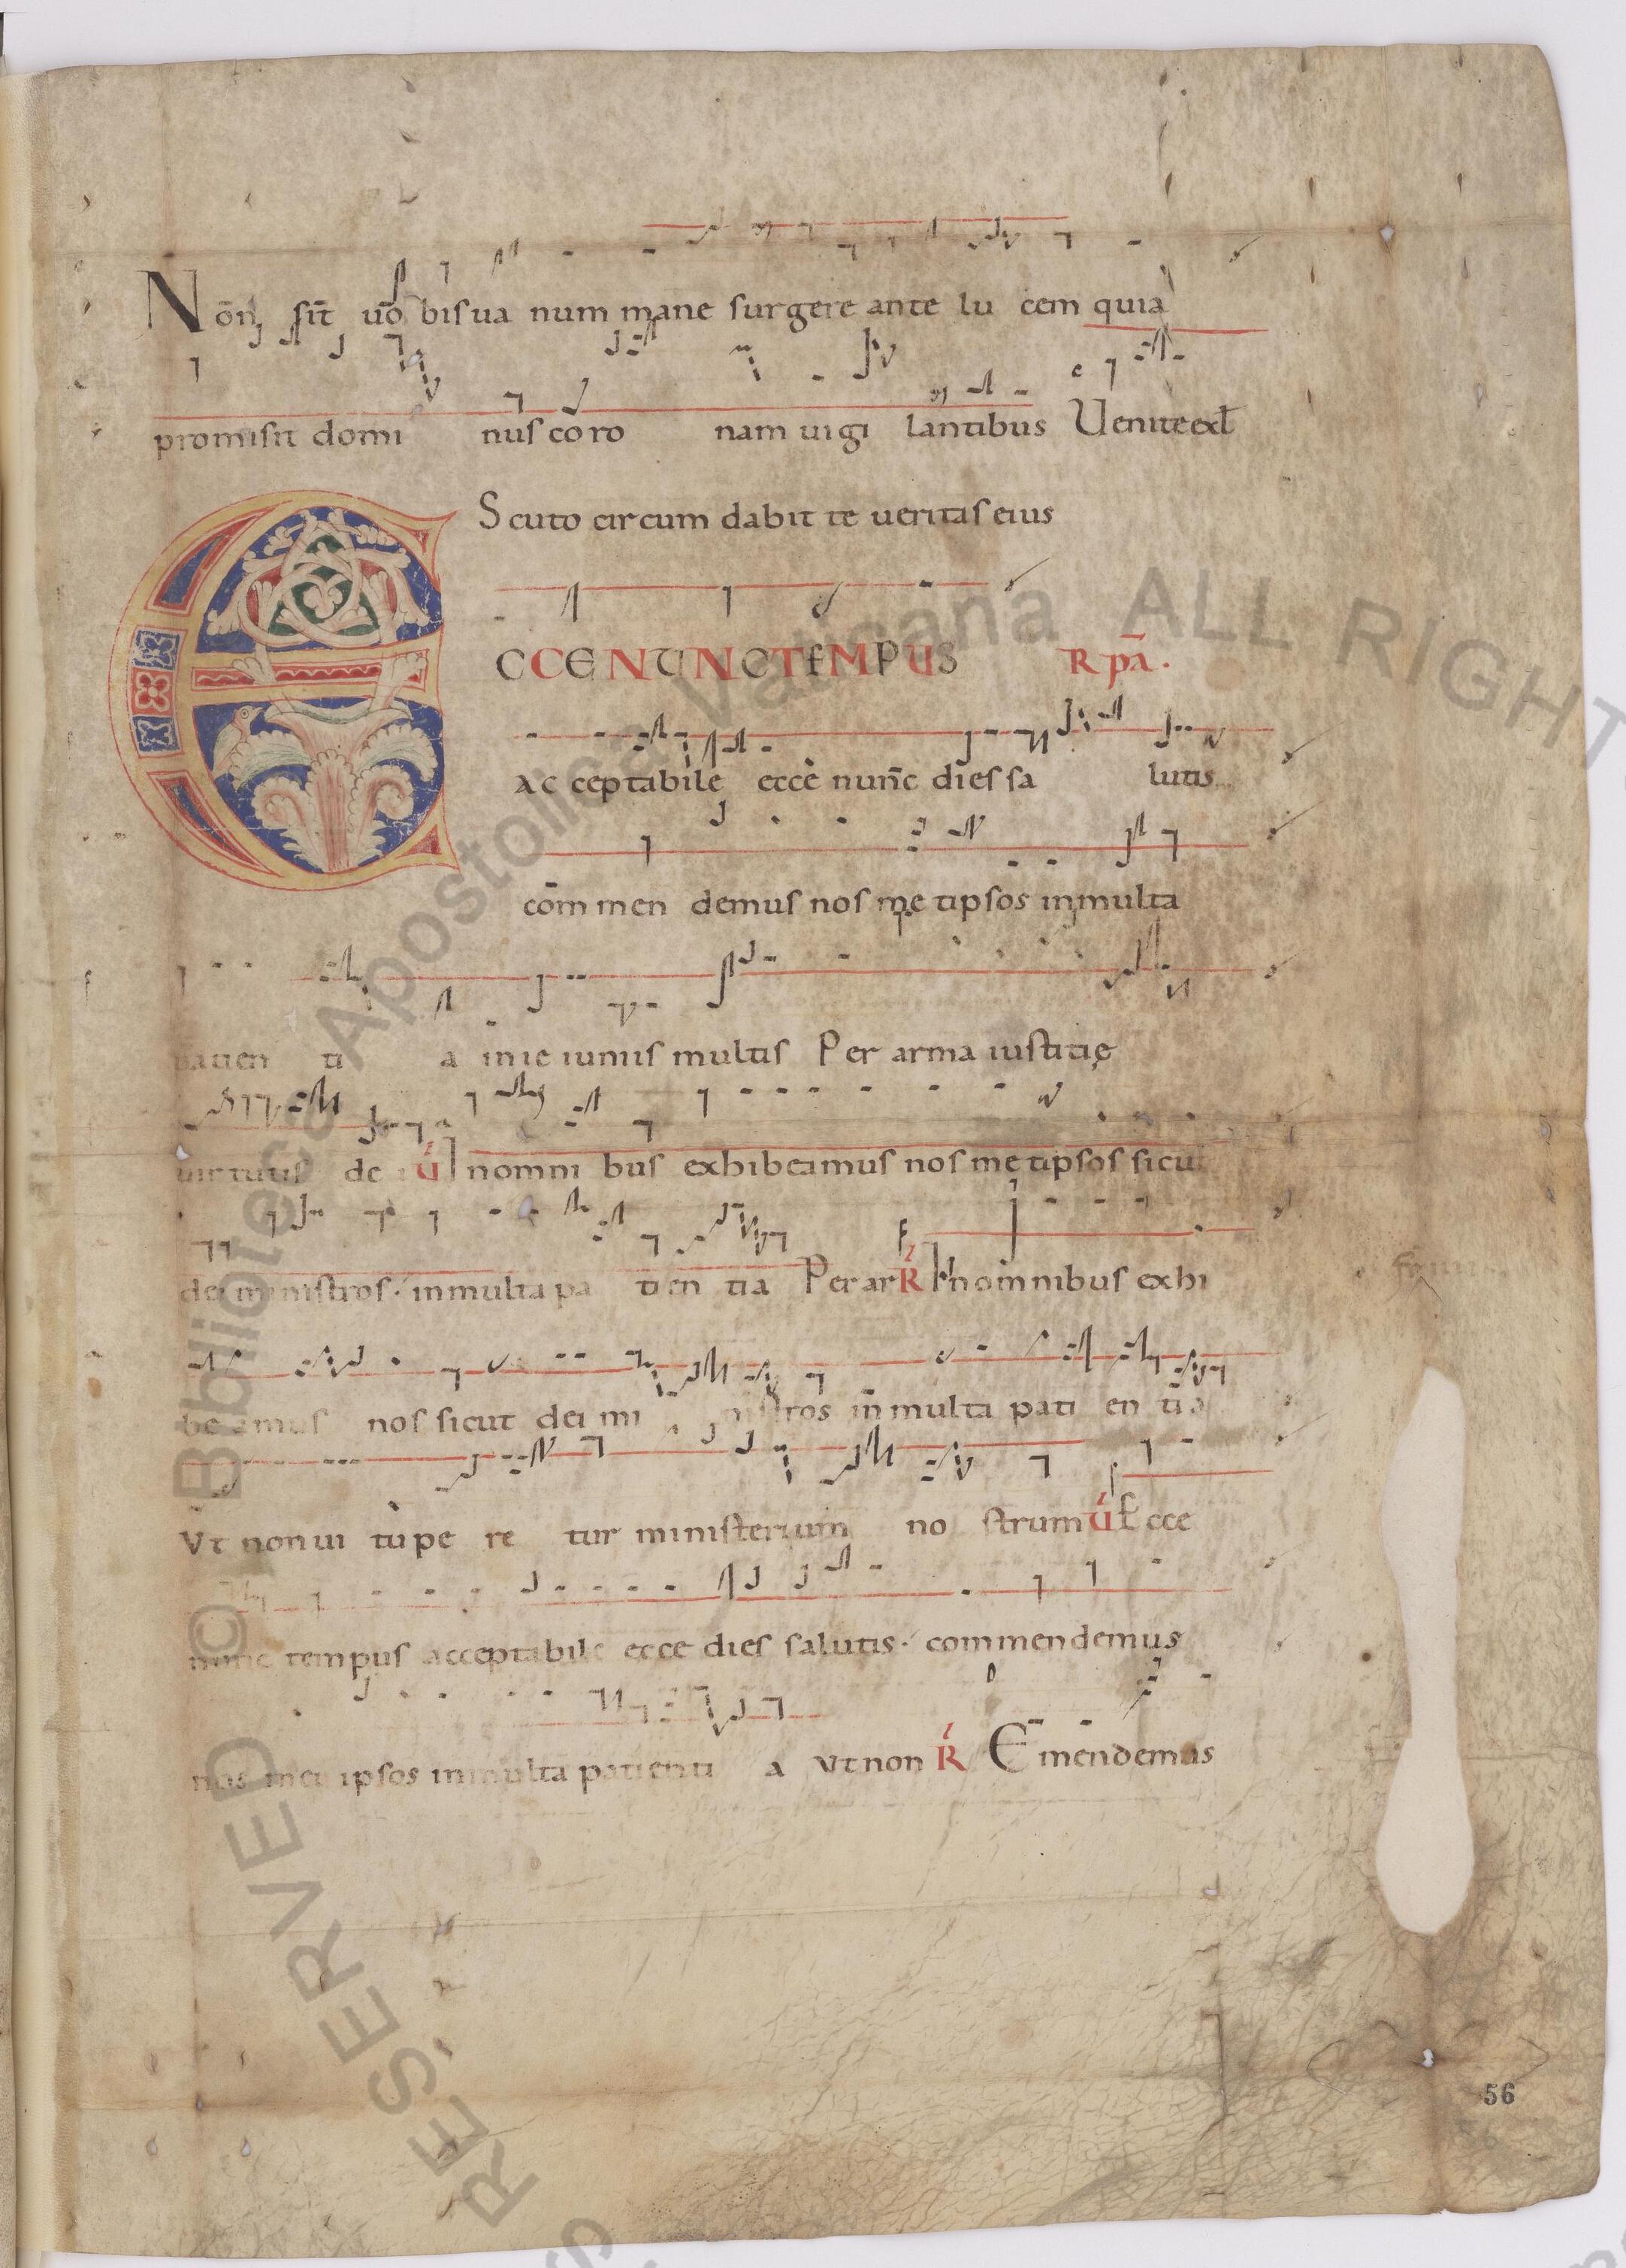 Non sit uobis ua num mane surgere ante lu cem quia
promisit domi nus co ro nam uigi lantibus Uenite exl
Scuto circum dabit te ueritas eius
ECCE NUNC TEMPUS R pā.
ac ceptabile ecce nunc dies sa lutis
com men demus nos me tipsos in multa
patien ti a in ie iuniis multis Per arma iustitię
uirtutis de i V In omni bus exhibeamus nos me tipsos sicut
dei ministros. in multa pa tien tia Per ar R V In omnibus exhi
be amus nos sicut dei mi nistros in multa pati en tia
Vt non ui tupe re tur ministerium no strum V Ecce
nunc tempus acceptabile ecce dies salutis. commendemus
nos met ipsos in multa patienti a Vt non R Emendemus
56
© Biblioteca Apostolica Vaticana ALL RIGHT
RESERVED